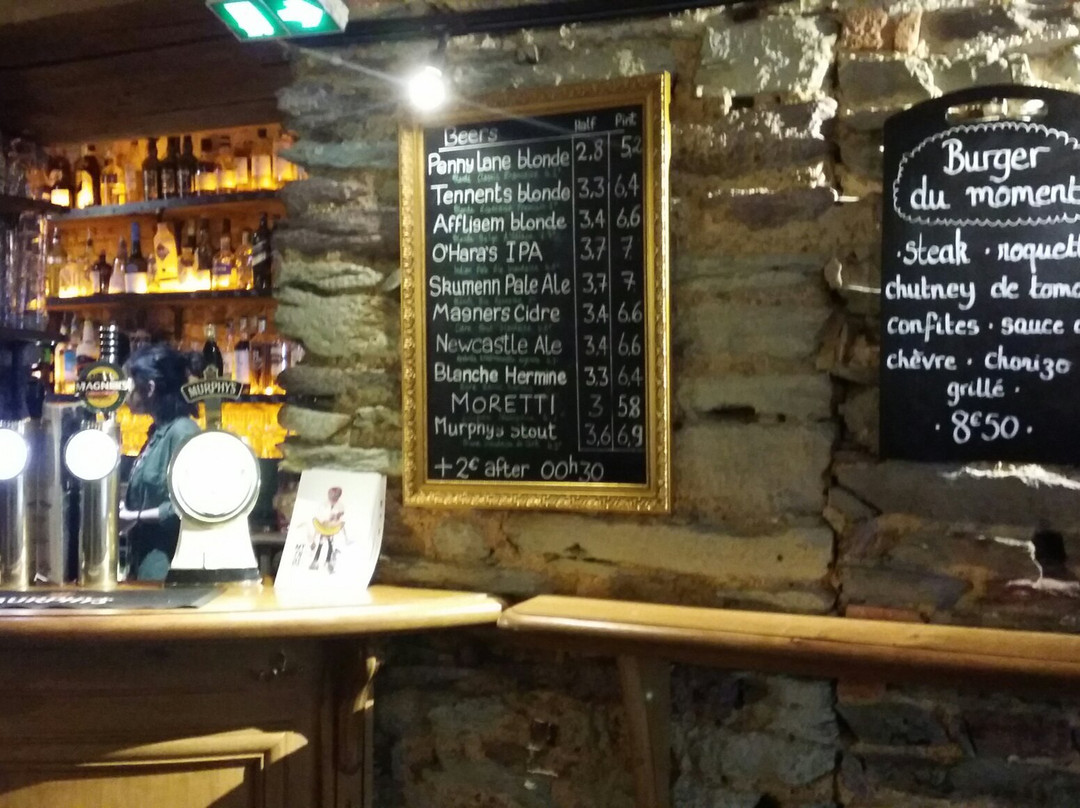 Beers Half Pint
Penny Lane blonde 2,8 5,2
Tennents blonde 3,3 6,4
Affligem blonde 3,4 6,6
O'Hara's IPA 3,7 7
Skumenn Pale Ale 3,7 7
Magners Cidre 3,4 6,6
Newcastle Ale 3,4 6,6
Blanche Hermine 3,3 6,4
MORETTI 3 58
Murphys Stout 3,6 6,9
+2€ after 00h30
Burger
du moment
· Steak · roquett
chutney de toma
confites · sauce
chèvre · Chorizo
grillé ·
· 8€50 ·
MAGNERS
MURPHY'S